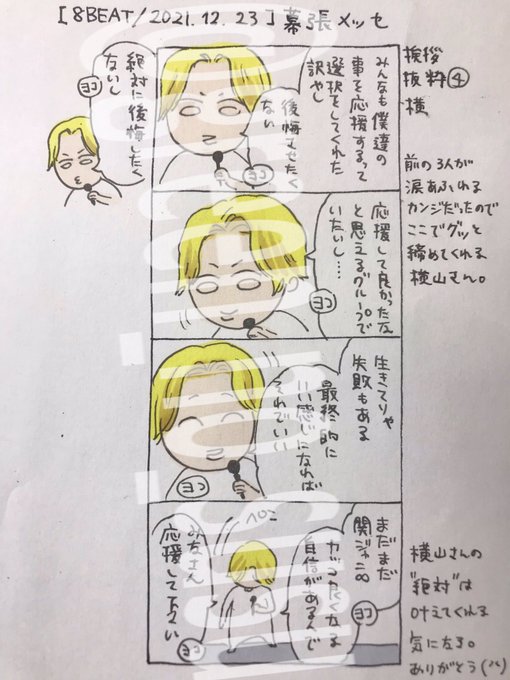 [8BEAT/2021.12.23]幕張メッセ
挨拶
抜粋④
横
前の3人が
涙あふれる
カンジだったので
ここでグッと
締めてくれる
横山さん。
みんなも僕達の
事を応援するって
選択をしてくれた
訳やし
後悔させたく
ない
ヨコ
絶対に後悔したく
ないし
ヨコ
応援して良かったな
と思えるグループで
いたいし……
ヨコ
生きてりゃ
失敗もある
最終的に
いい感じになれば
それでいい
ヨコ
まだまだ
関ジャニ∞
カッコ良くなる
自信があるんで
ヨコ
ペコ
みなさん
応援して下さい
ヨコ
横山さんの
"絶対"は
叶えてくれる
気になる。
ありがとう